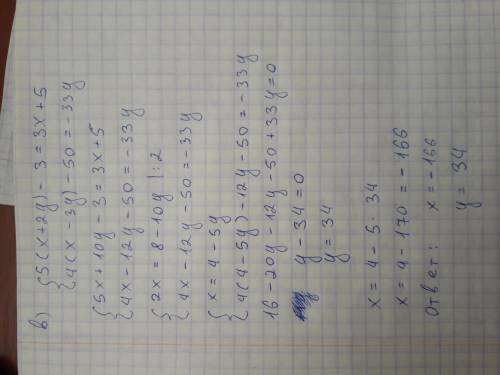 в) { 5(x+2y) - 3 = 3x + 5
{ 4(x 3y) - 50 = -33y
{ 5x + 10y - 3 = 3x + 5
{ 4x - 12y - 50 = -33y
{ 2x = 8 - 10y | : 2
{ 4x - 12y - 50 = -33y
{ x = 4 - 5y
{ 4(4 - 5y) - 12y - 50 = -33y
16 - 20y - 12y - 50 + 33y = 0
y - 34 = 0
y = 34
x = 4 - 5 · 34
x = 4 - 170 = -166
Ответ: x = -166
y = 34